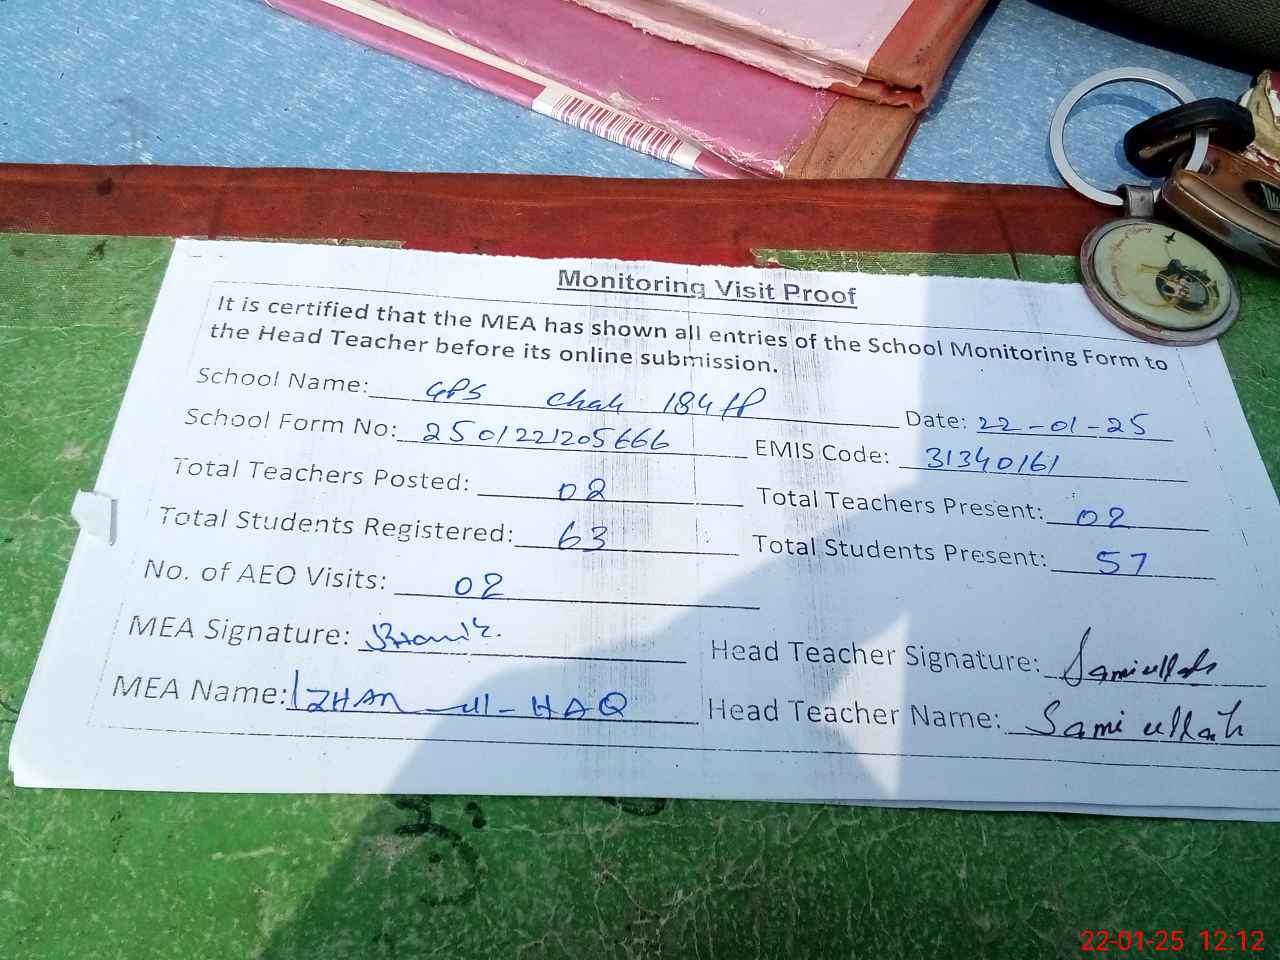 Monitoring Visit Proof
It is certified that the MEA has shown all entries of the School Monitoring Form to
the Head Teacher before its online submission.
School Name: GPS Chak 184/P Date: 22-01-25
School Form No: 2501221205666 EMIS Code: 31340161
Total Teachers Posted: 02 Total Teachers Present: 02
Total Students Registered: 63 Total Students Present: 57
No. of AEO Visits: 02
MEA Signature: Head Teacher Signature: Samiullah
MEA Name: IZHAR-ul-HAQ Head Teacher Name: Samiullah
22-01-25 12:12